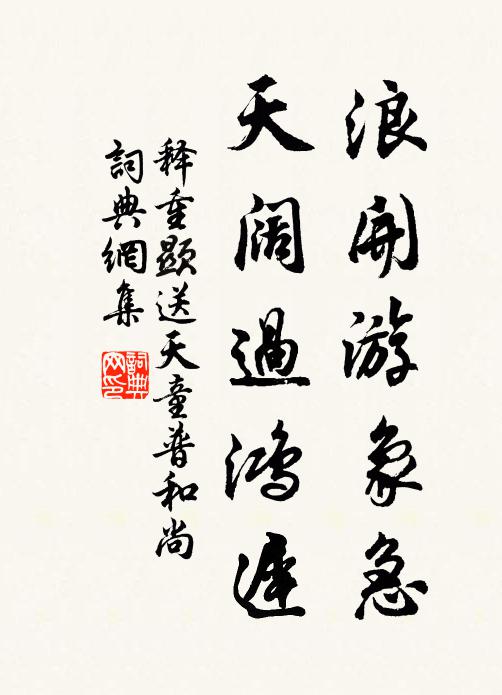 浪開游象急
天阔過鴻遲
释重顯送天童普和尚
詞典網集
詞典
网印